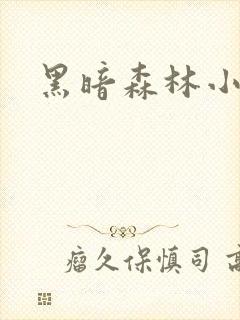 黑暗森林小
瘤久保慎司 高